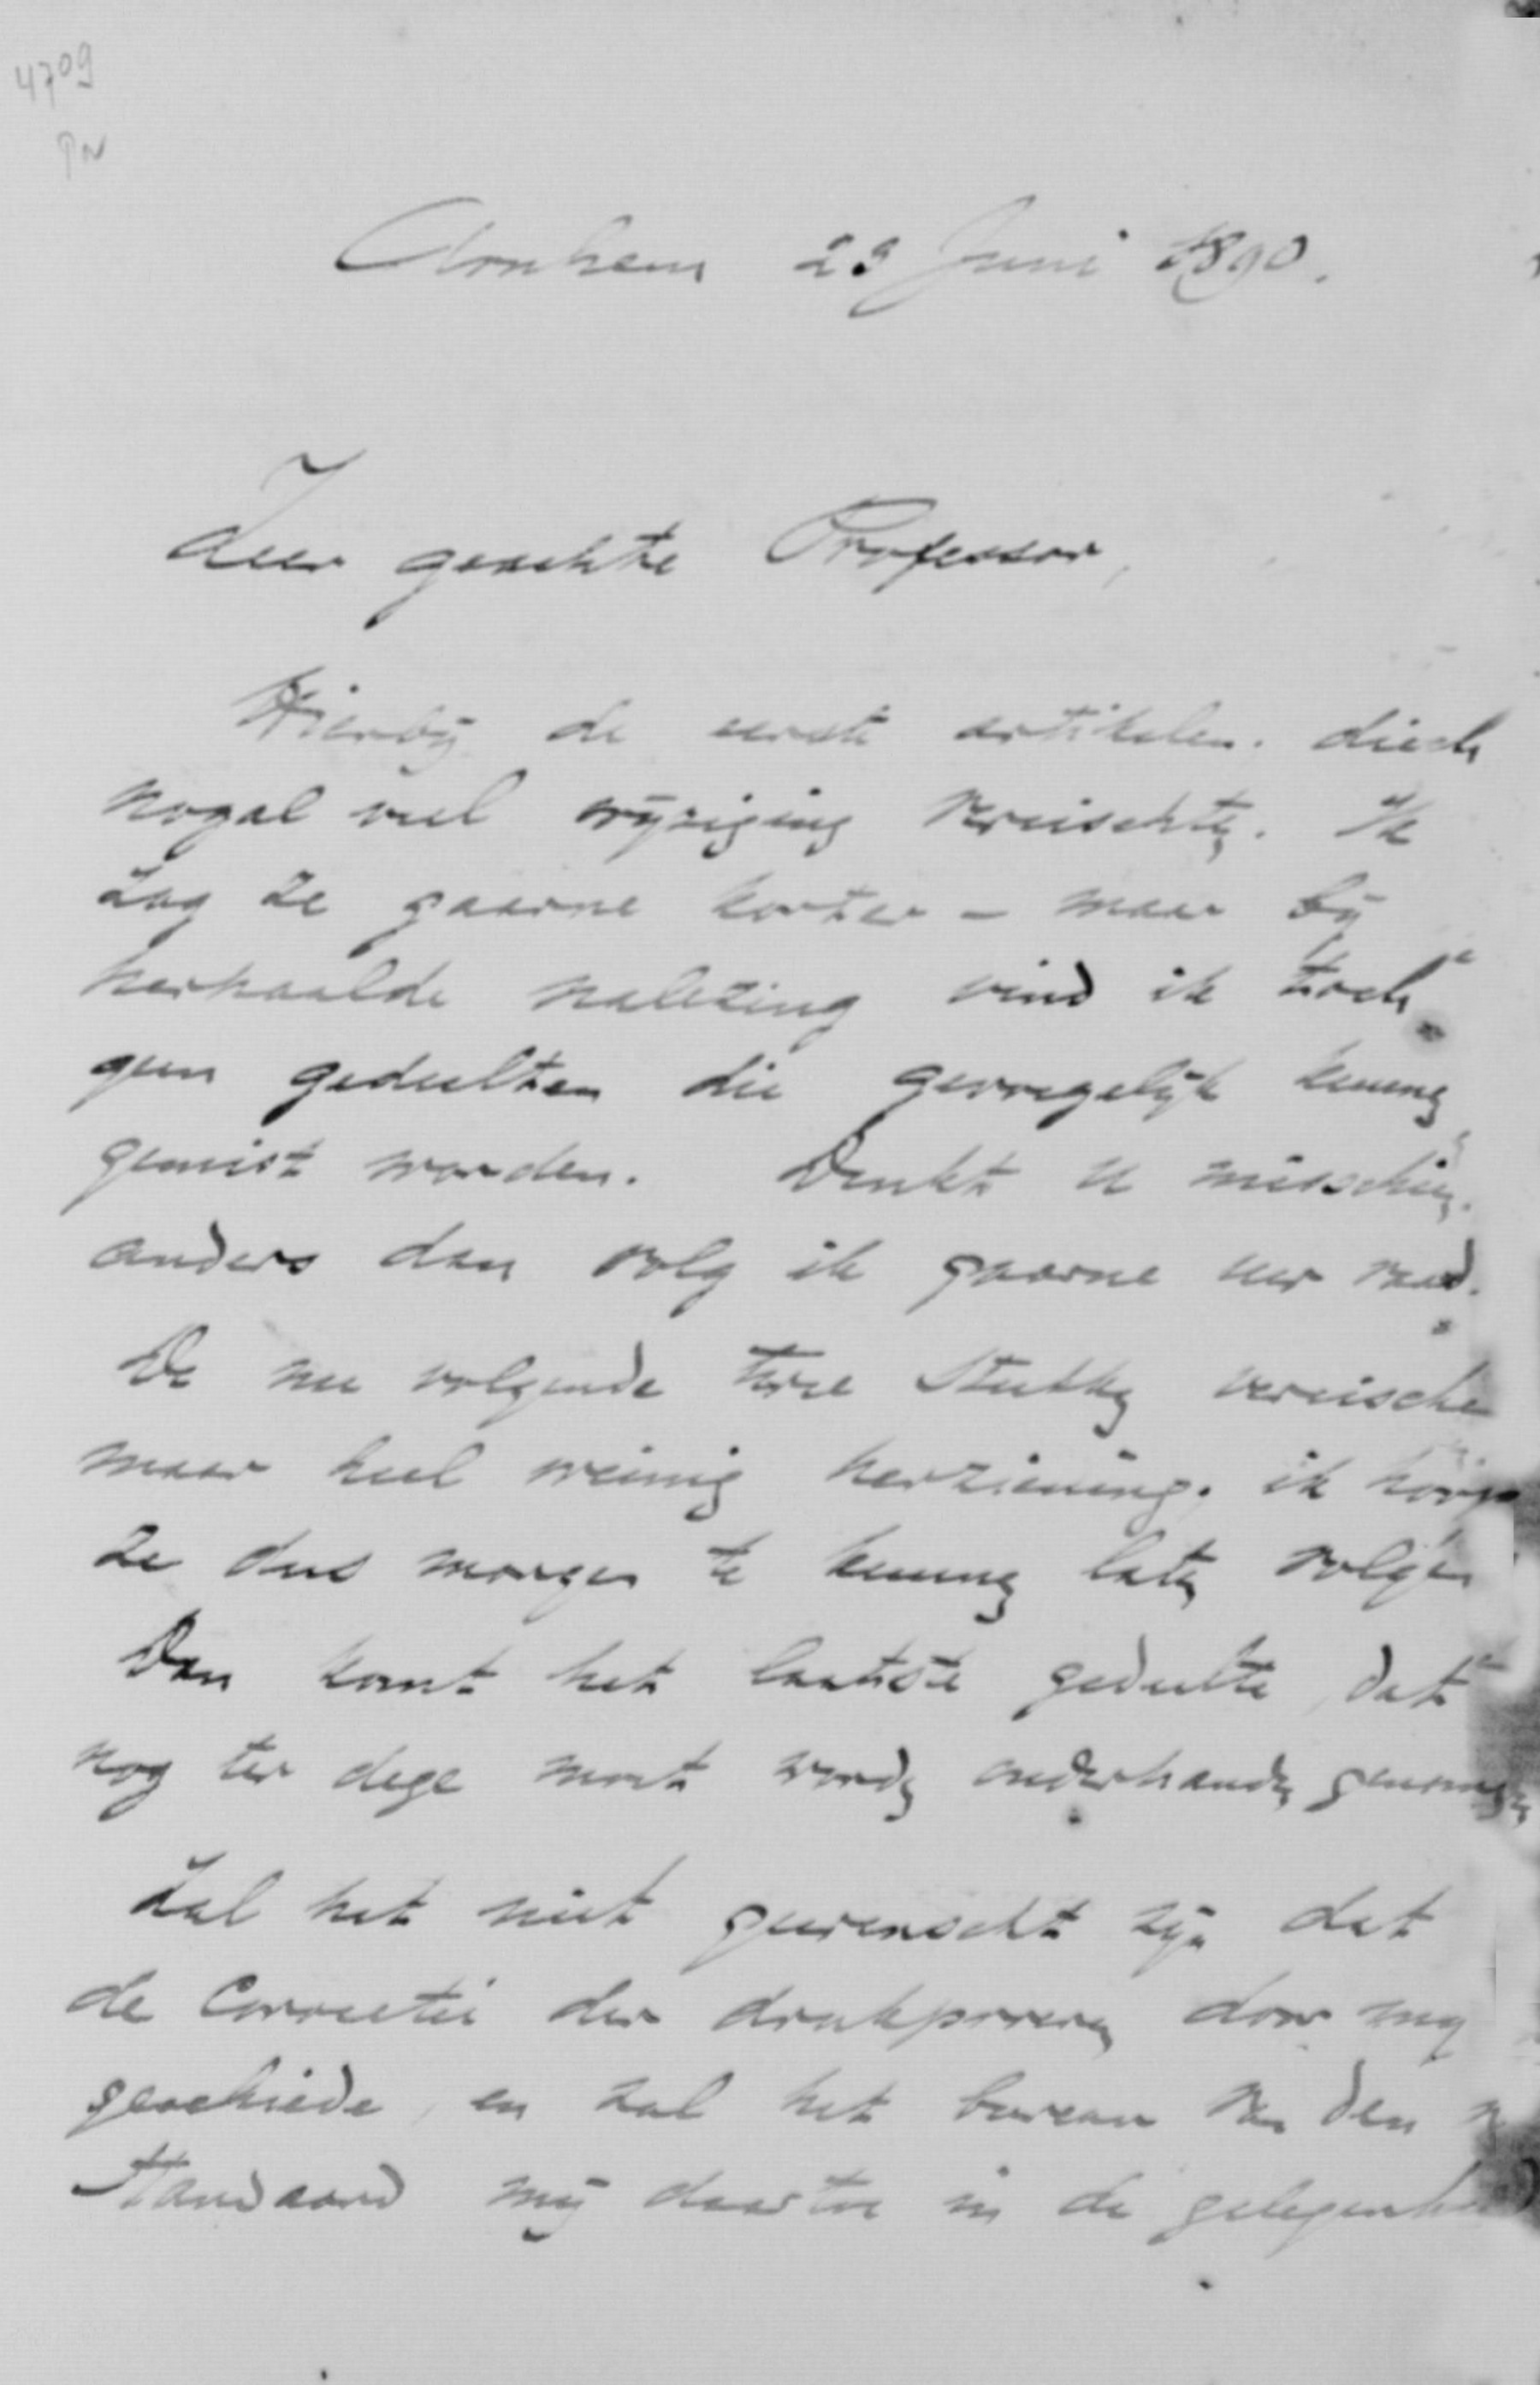 4709
PN
Arnhem 29 Juni 1890.
Zeer geachte Professor,
Hierbij de eerste artikelen. die
nogal veel wijziging vereischten. Ik
zag ze gaarne korter – maar bij
herhaalde nalezing vind ik toch
geen gedeelten die gevoegelijk kunnen
gemist worden. Denkt u misschien
anders dan volg ik gaarne uw raad.
De nu volgende twee stukken vereische
maar heel weinig herziening. ik hoop
ze dus morgen te kunnen laten volgen
Dan komt het laatste gedeelte, dat
nog ter dege moet worden onderhanden genomen
Zal het niet gewenscht zijn dat
de Correctie der drukproeven door mij
geschiede, en zal het bureau van den
Standaard mij daartoe in de gelegenheid